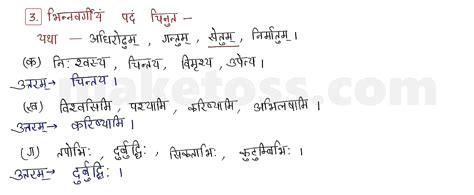 3. भिन्नवर्गीयं पदं चिनुत -
यथा - अधिरोढुम् , गन्तुम् , सेतुम् , निर्मातुम् ।
(क) निः श्वस्य , चिन्तय , विमृश्य , उपेत्य ।
उत्तरम् → चिन्तय ।
(ख) विश्वसिमि , पश्यामि , करिष्यामि , अभिलषामि ।
उत्तरम् → करिष्यामि ।
(ग) तपोभिः , दुर्बुद्धिः , सिकताभिः , कुटुम्बिभिः ।
उत्तरम् → दुर्बुद्धिः ।
maketoss.com